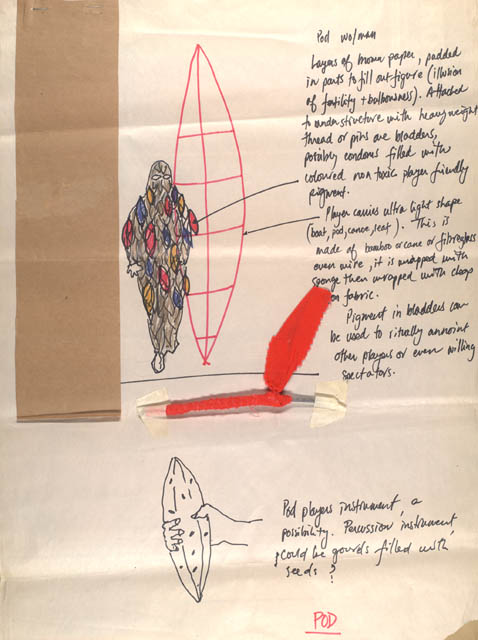 Pod wo/man
Layers of brown paper, padded
in parts to fill out figure (illusion
of fertility + bulbousness). Attached
to understructure with heavyweight
thread or pins are bladders,
possibly condoms filled with
coloured non toxic player friendly
pigment.
Player carries ultra light shape
(boat, pod, canoe, seat). This is
made of bamboo or cane or fibreglass
even wire, it is wrapped with
sponge then wrapped with cheap
fabric.
Pigment in bladders can
be used to ritually annoint
other players or even willing
spectators.
Pod players instrument, a
possibility. Percussion instrument,
could be gourds filled with
seeds?
POD